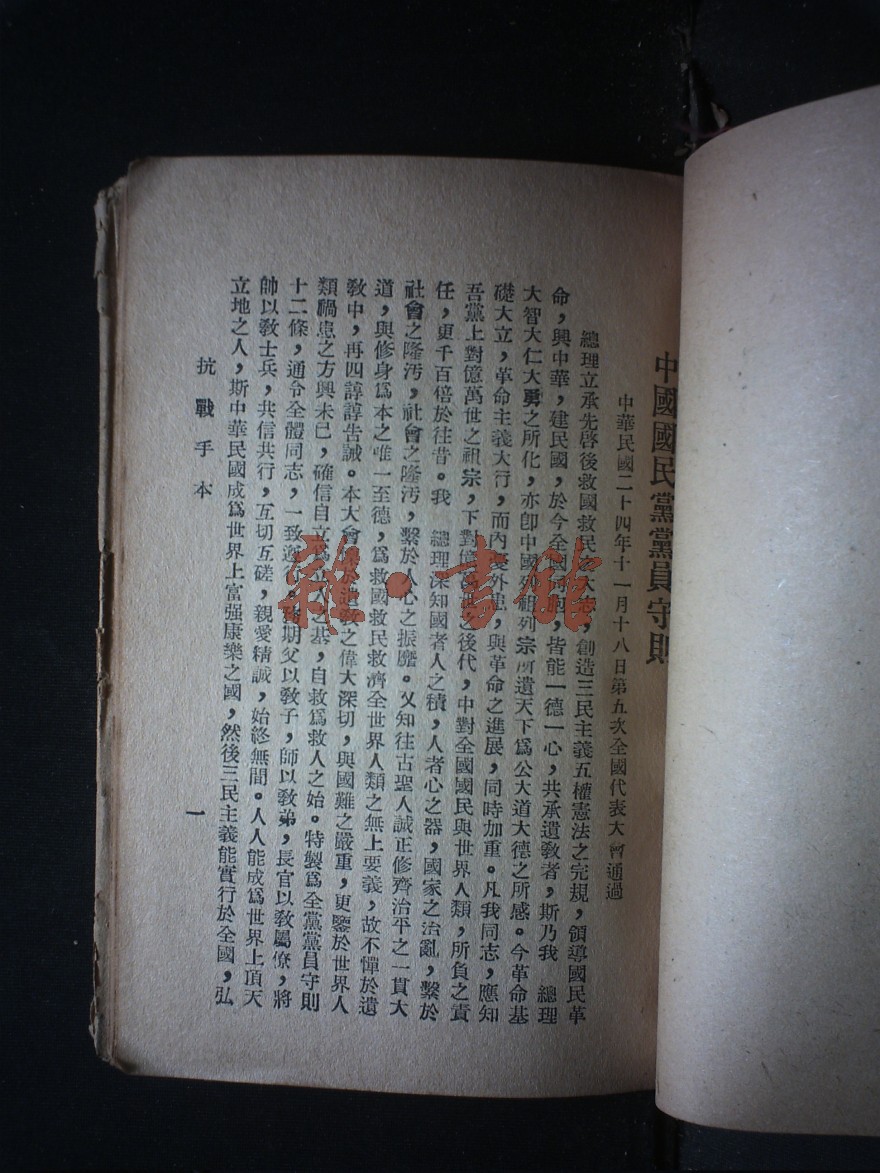 中國國民黨黨員守則
中華民國二十四年十一月十八日第五次全國代表大會通過
總理立承先啓後救國救民之大志，創造三民主義五權憲法之完規，領導國民革
命，興中華，建民國，於今全國同胞，皆能一德一心，共承遺敎者，斯乃我　總理
大智大仁大勇之所化，亦卽中國列祖列宗所遺天下爲公大道大德之所感。今革命基
礎大立，革命主義大行，而內憂外患，與革命之進展，同時加重。凡我同志，應知
吾黨上對億萬世之祖宗，下對億萬世之後代，中對全國國民與世界人類，所負之責
任，更千百倍於往昔。我　總理深知國者人之積，人者心之器，國家之治亂，繫於
社會之隆汚，社會之隆汚，繫於人心之振靡。又知往古聖人誠正修齊治平之一貫大
道，與修身爲本之唯一至德，爲救國救民救濟全世界人類之無上要義，故不憚於遺
敎中，再四諄諄告誡。本大會於遺敎之偉大深切，與國難之嚴重，更鑒於世界人
類禍患之方興未已，確信自立爲立人之基，自救爲救人之始。特製爲全黨黨員守則
十二條，通令全體同志，一致遵行。期父以敎子，師以敎弟，長官以敎屬僚，將
帥以敎士兵，共信共行，互切互磋，親愛精誠，始終無間。人人能成爲世界上頂天
立地之人，斯中華民國成爲世界上富强康樂之國，然後三民主義能實行於全國，弘
抗戰手本
一
雜·書館